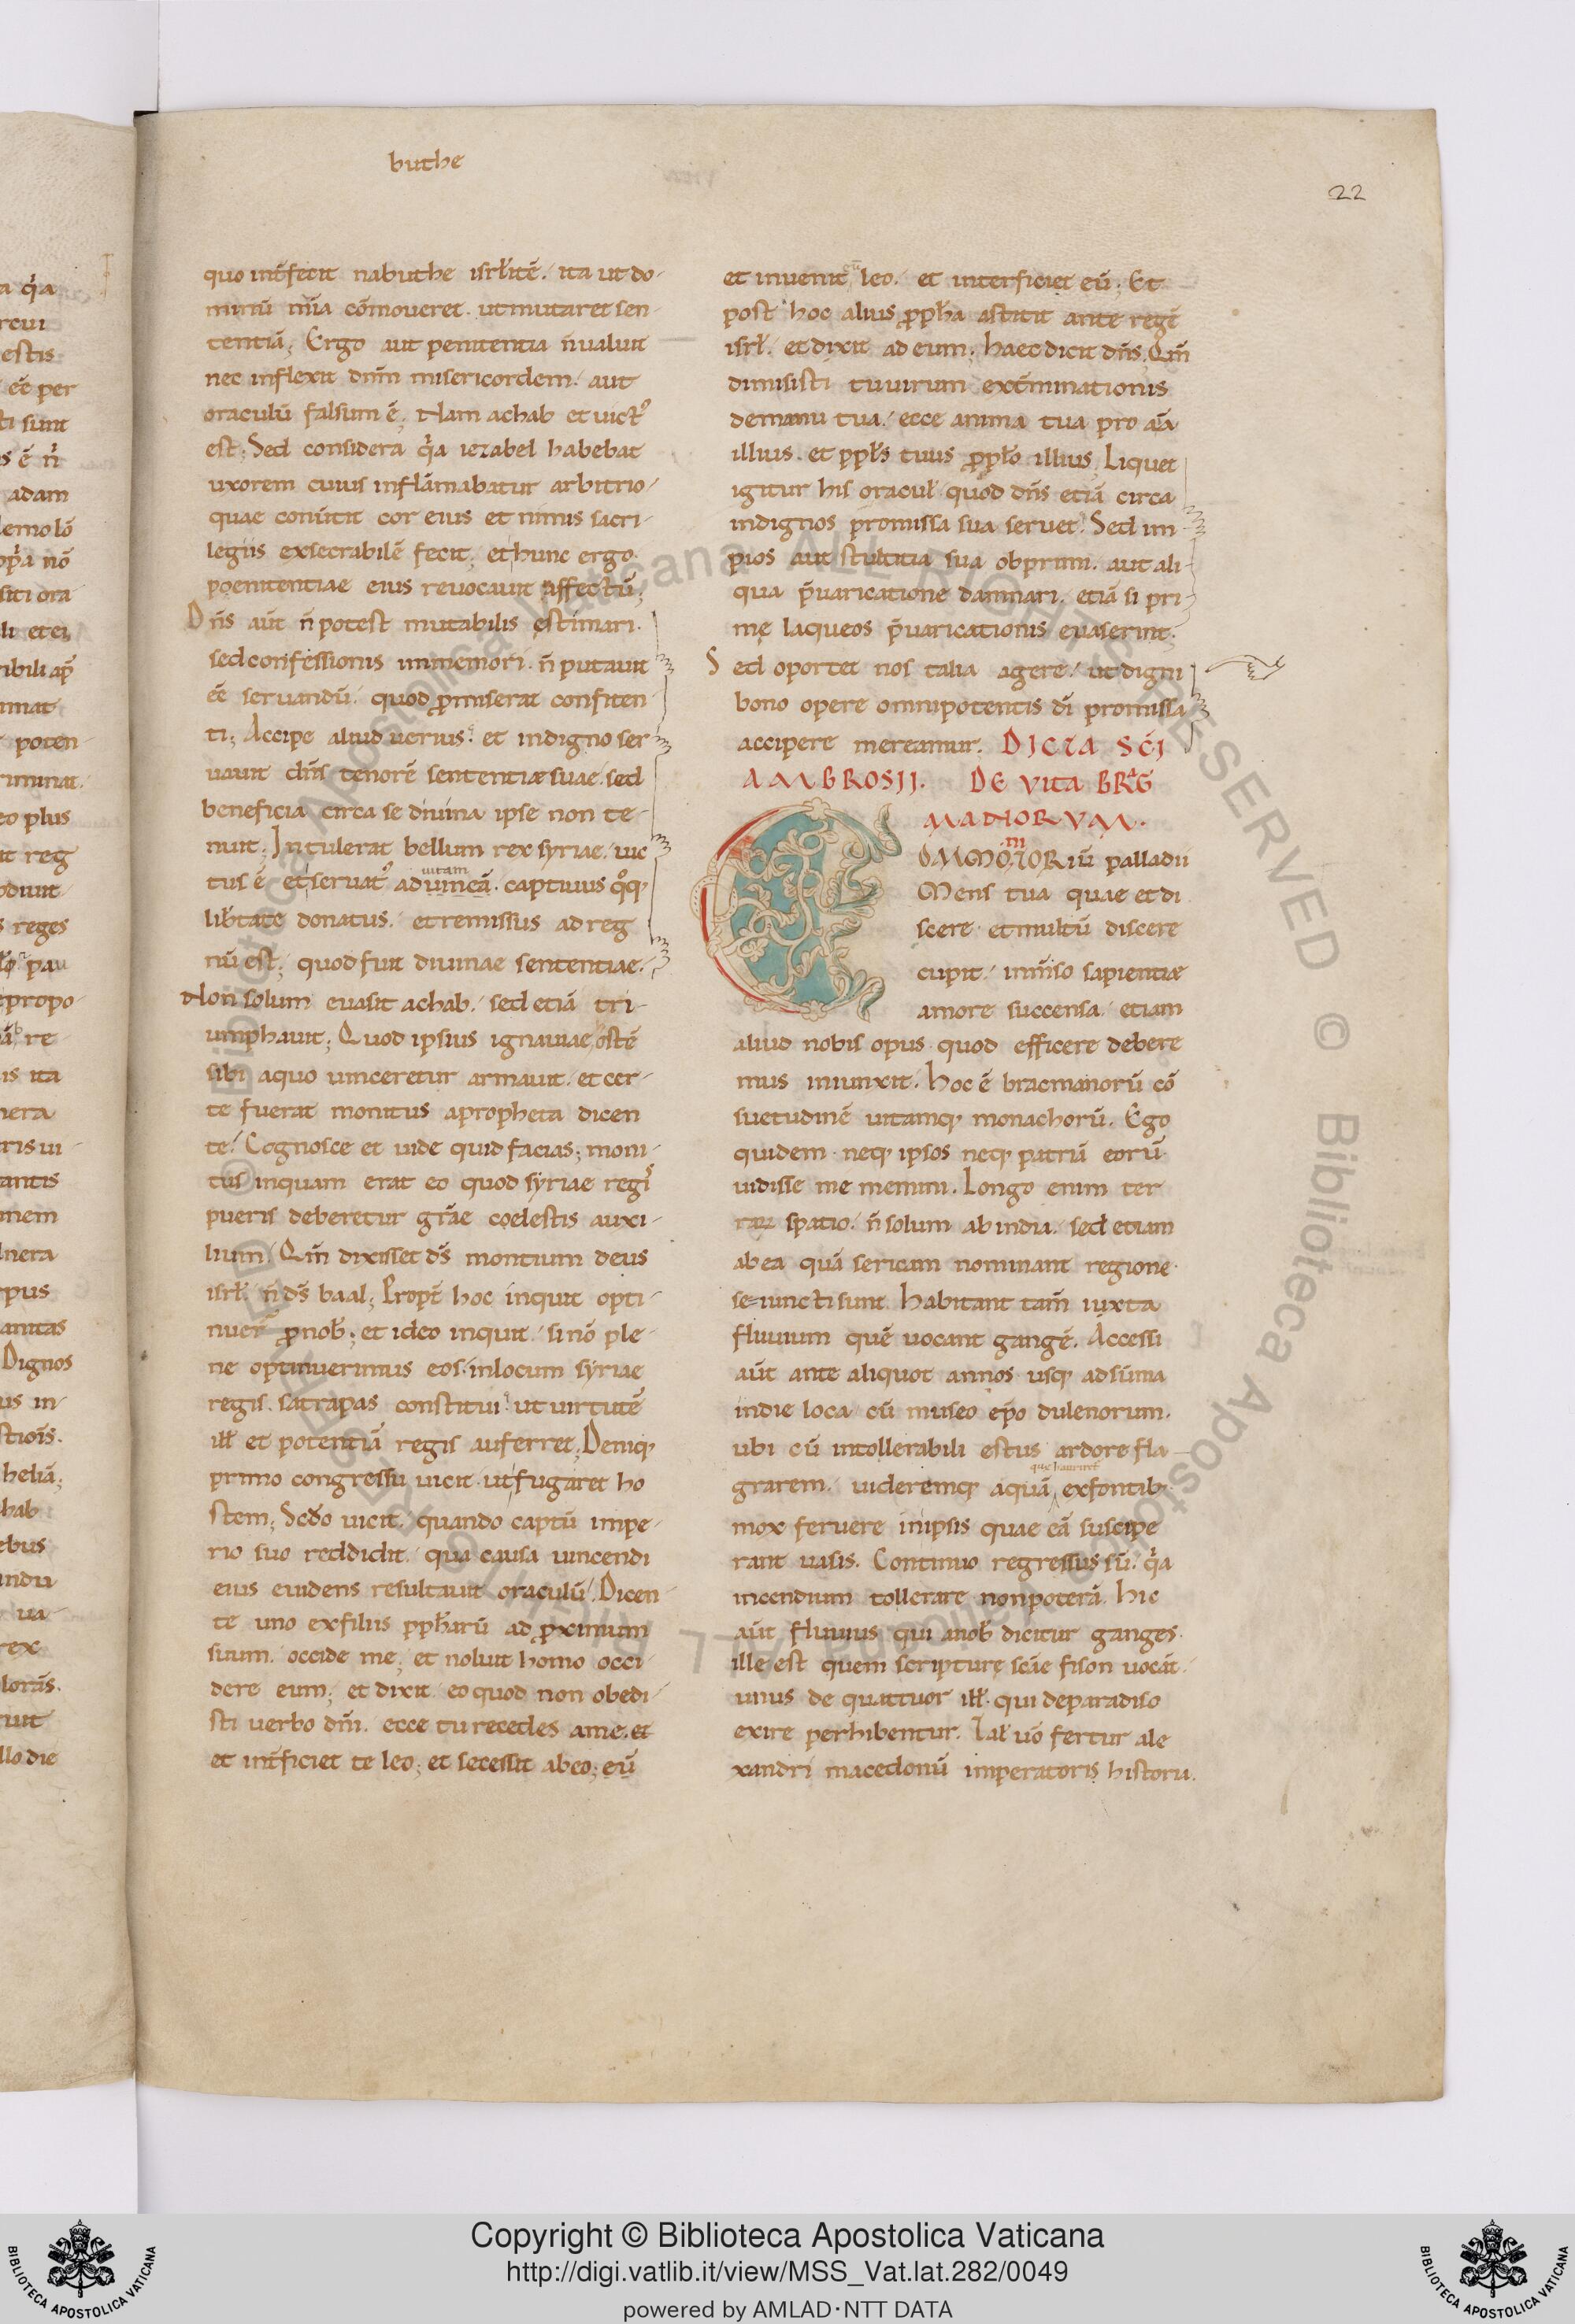 buthe
22
quo int̄fecit nabuthe isrl̄itē. ita ut do-
minū mīa cōmoueret. ut mutaret sen-
tentiā; Ergo aut penitentia n̄ ualuit
nec inflexit dn̄m misericordem. aut
oraculū falsum ē; Nam achab et uictꝰ
est; Sed considera qͥa iezabel habebat
uxorem cuius inflāmabatur arbitrio
quae conūtit cor eius et nimis sacri-
legiis exsecrabilē fecit; et hunc ergo
poenitentiae eius reuocauit affectū;
Dn̄s aūt n̄ potest mutabilis ęstimari.
sed confessionis inmemori. n̄ putauit
eē seruandū. quod ꝓmiserat confiten
ti; Accipe aliud uerius. et indigno ser
uauit dn̄s tenorē sententiæ suae. sed
beneficia circa se diuina ipse non te-
nuit; Intulerat bellum rex syriae. uic
tus ē et seruatꝰ ad uincā. captiuus qͦqꝫ
uitam
lib̄tate donatus. et remissus ad reg
nū est; quod fuit diuinae sententiae.
Non solum euasit achab. sed etiā tri-
umphauit; Quod ipsius ignauiae ostē
sibi a quo uinceretur armauit. et cer-
te fuerat monitus a propheta dicen
te. Cognosce et uide quid facias; moni-
tus inquam erat eo quod syriae regis
pueris deberetur gr̄ae coelestis auxi-
lium. Qm̄ dixisset d̄s montium deus
isrl̄. n̄ d̄s baal; Propt̄ hoc inquit opti-
nuer̄ ꝓ nob̄; et ideo inquit. si nō ple-
ne optinuerimus eos. in locum syriae
regis. satrapas constitui. ut uirtutē
ill̄ et potentiā regis auferret; Deniqꝫ
primo congressu uicit. ut fugaret ho
stem; Sc̄do uicit. quando captū impe-
rio suo reddidit. qua causa uincendi
eius euidens resultauit oraculū. Dicen-
te uno ex filiis ꝓph̄arū ad ꝓximum
suum. occide me; et noluit homo occi-
dere eum; et dixit. eo quod non obedi-
sti uerbo dn̄i. ecce tu recedes a me. et
et int̄ficiet te leo; et secessit ab eo; eū
et inuenit eū leo. et interficiet eū; Et
post hoc alius ꝓph̄a astitit ante regē
isrl̄. et dixit ad eum. haec dicit dn̄s. Qm̄
dimisisti tu uirum ext̄minationis
de manu tua. ecce anima tua pro aīa
illius. et ppl̄s tuus ꝓ ppl̄o illius. Liquet
igitur his oracul̄ quod dn̄s etiā circa
indignos promissa sua seruet. Sed im-
pios aut stultitia sua obprimi. aut ali-
qua p̄uaricatione damnari. etiā si pri-
mę laqueos p̄uaricationis euaserint;
Sed oportet nos talia agere. ut digni
bono opere omnipotentis dī promissa
accipere mereamur. DICTA SC̄I
AMBROSII. DE VITA BRAG
MANORVM.
COMMONITORIū palladii
Mens tua quae et di
scere et multū discere
cupit. inm̄so sapientiæ
amore succensa. etiam
aliud nobis opus quod efficere debere
mus iniunxit. hoc ē bracmanorū cō
suetudinē uitamqꝫ monachorū. Ego
quidem neqꝫ ipsos neqꝫ patriā eorū
uidisse me memini. Longo enim ter
raꝝ spatio. n̄ solum ab india. sed etiam
ab ea quā sericam nominant regione
se-iuncti sunt. habitant tam̄ iuxta
fluuium quē uocant gangē. Accessi
aūt ante aliquot annos usqꝫ ad sūma
indie loca cū museo ep̄o dulenorum.
ubi cū intollerabili estus ardore fla-
grarem. uideremqꝫ aquā ex fontibꝫ
que hauriret
mox feruere in ipsis quae eā suscipe
rant uasis. Continuo regressus sū. qͥa
incendium tollerare non poterā. hic
aūt fluuius qui a nob̄ dicitur ganges.
ille est quem scripturę sc̄ae fison uocāt.
unus de quattuor ill̄. qui de paradiso
exire perhibentur. Ial̄ uō fertur ale
xandri macedonū imperatoris historia.
Copyright © Biblioteca Apostolica Vaticana
http://digi.vatlib.it/view/MSS_Vat.lat.282/0049
powered by AMLAD·NTT DATA
BIBLIOTECA APOSTOLICA VATICANA
BIBLIOTECA APOSTOLICA VATICANA